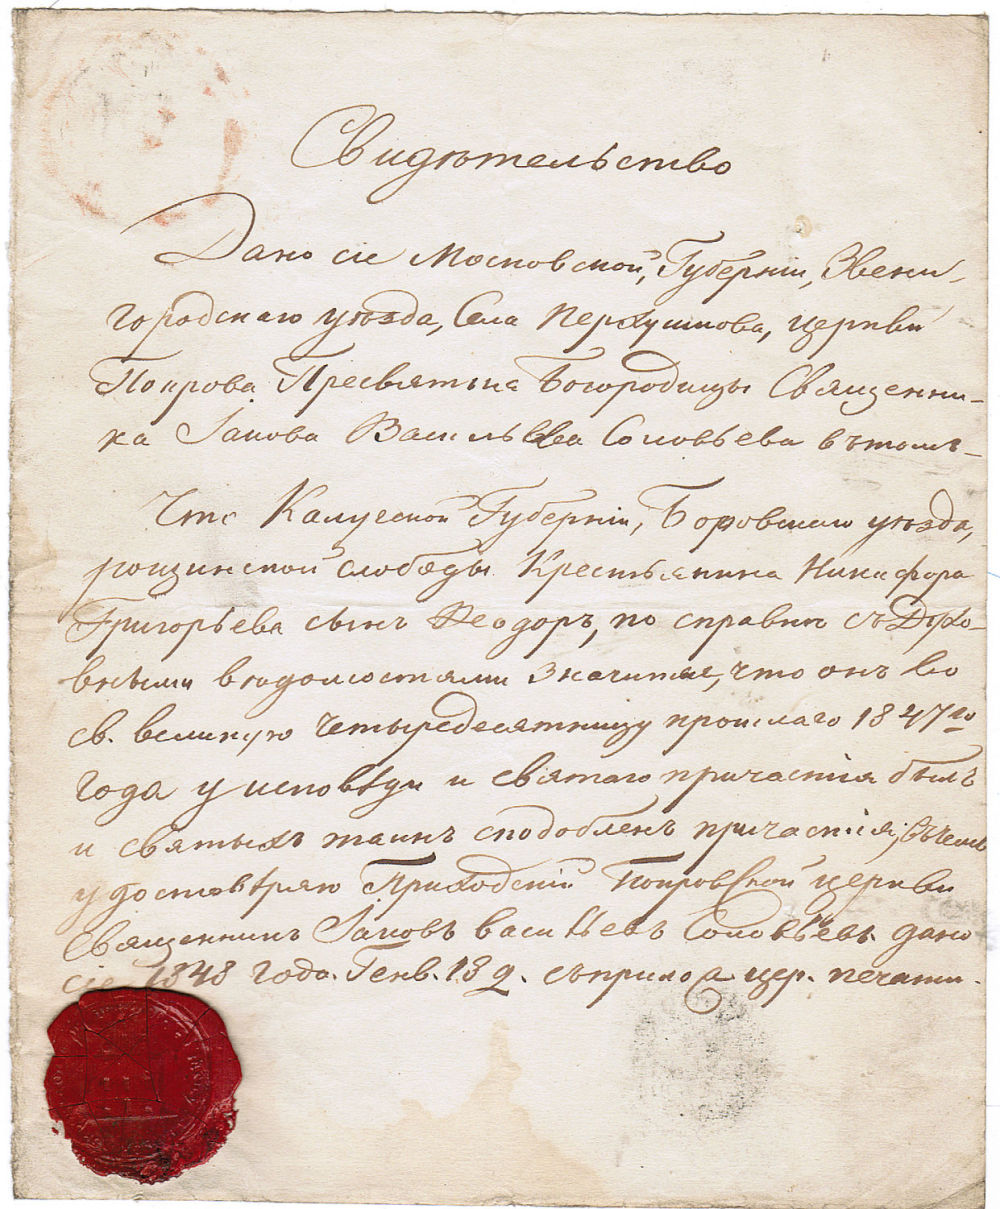 Свидѣтельство
Дано сіе Московской, Губерніи, Звени-
городскаго уѣзда, Села Перхушкова, церкви
Покрова Пресвятыя Богородицы Священни-
ка Іакова Васильева Соловьева въ томъ-
Что Калужской Губерніи, Боровскаго уѣзда,
рощинской слободы Крестьянина Никифора
Григорьева сынъ Ѳеодоръ, по справкѣ съ Духо-
вными вѣдомостями значится, что онъ во
св. великую четыредесятницу прошлаго 1847го
года у исповѣди и святаго причастія былъ
и святыхъ таинъ сподобленъ причастія, въ чемъ
удостовѣряю Приходскій Покровской церкви
Священникъ Іаковъ Васильевъ Соловьевъ. дано
сіе 1848 года. Генв. 13 д. съ прилож цер. печати.